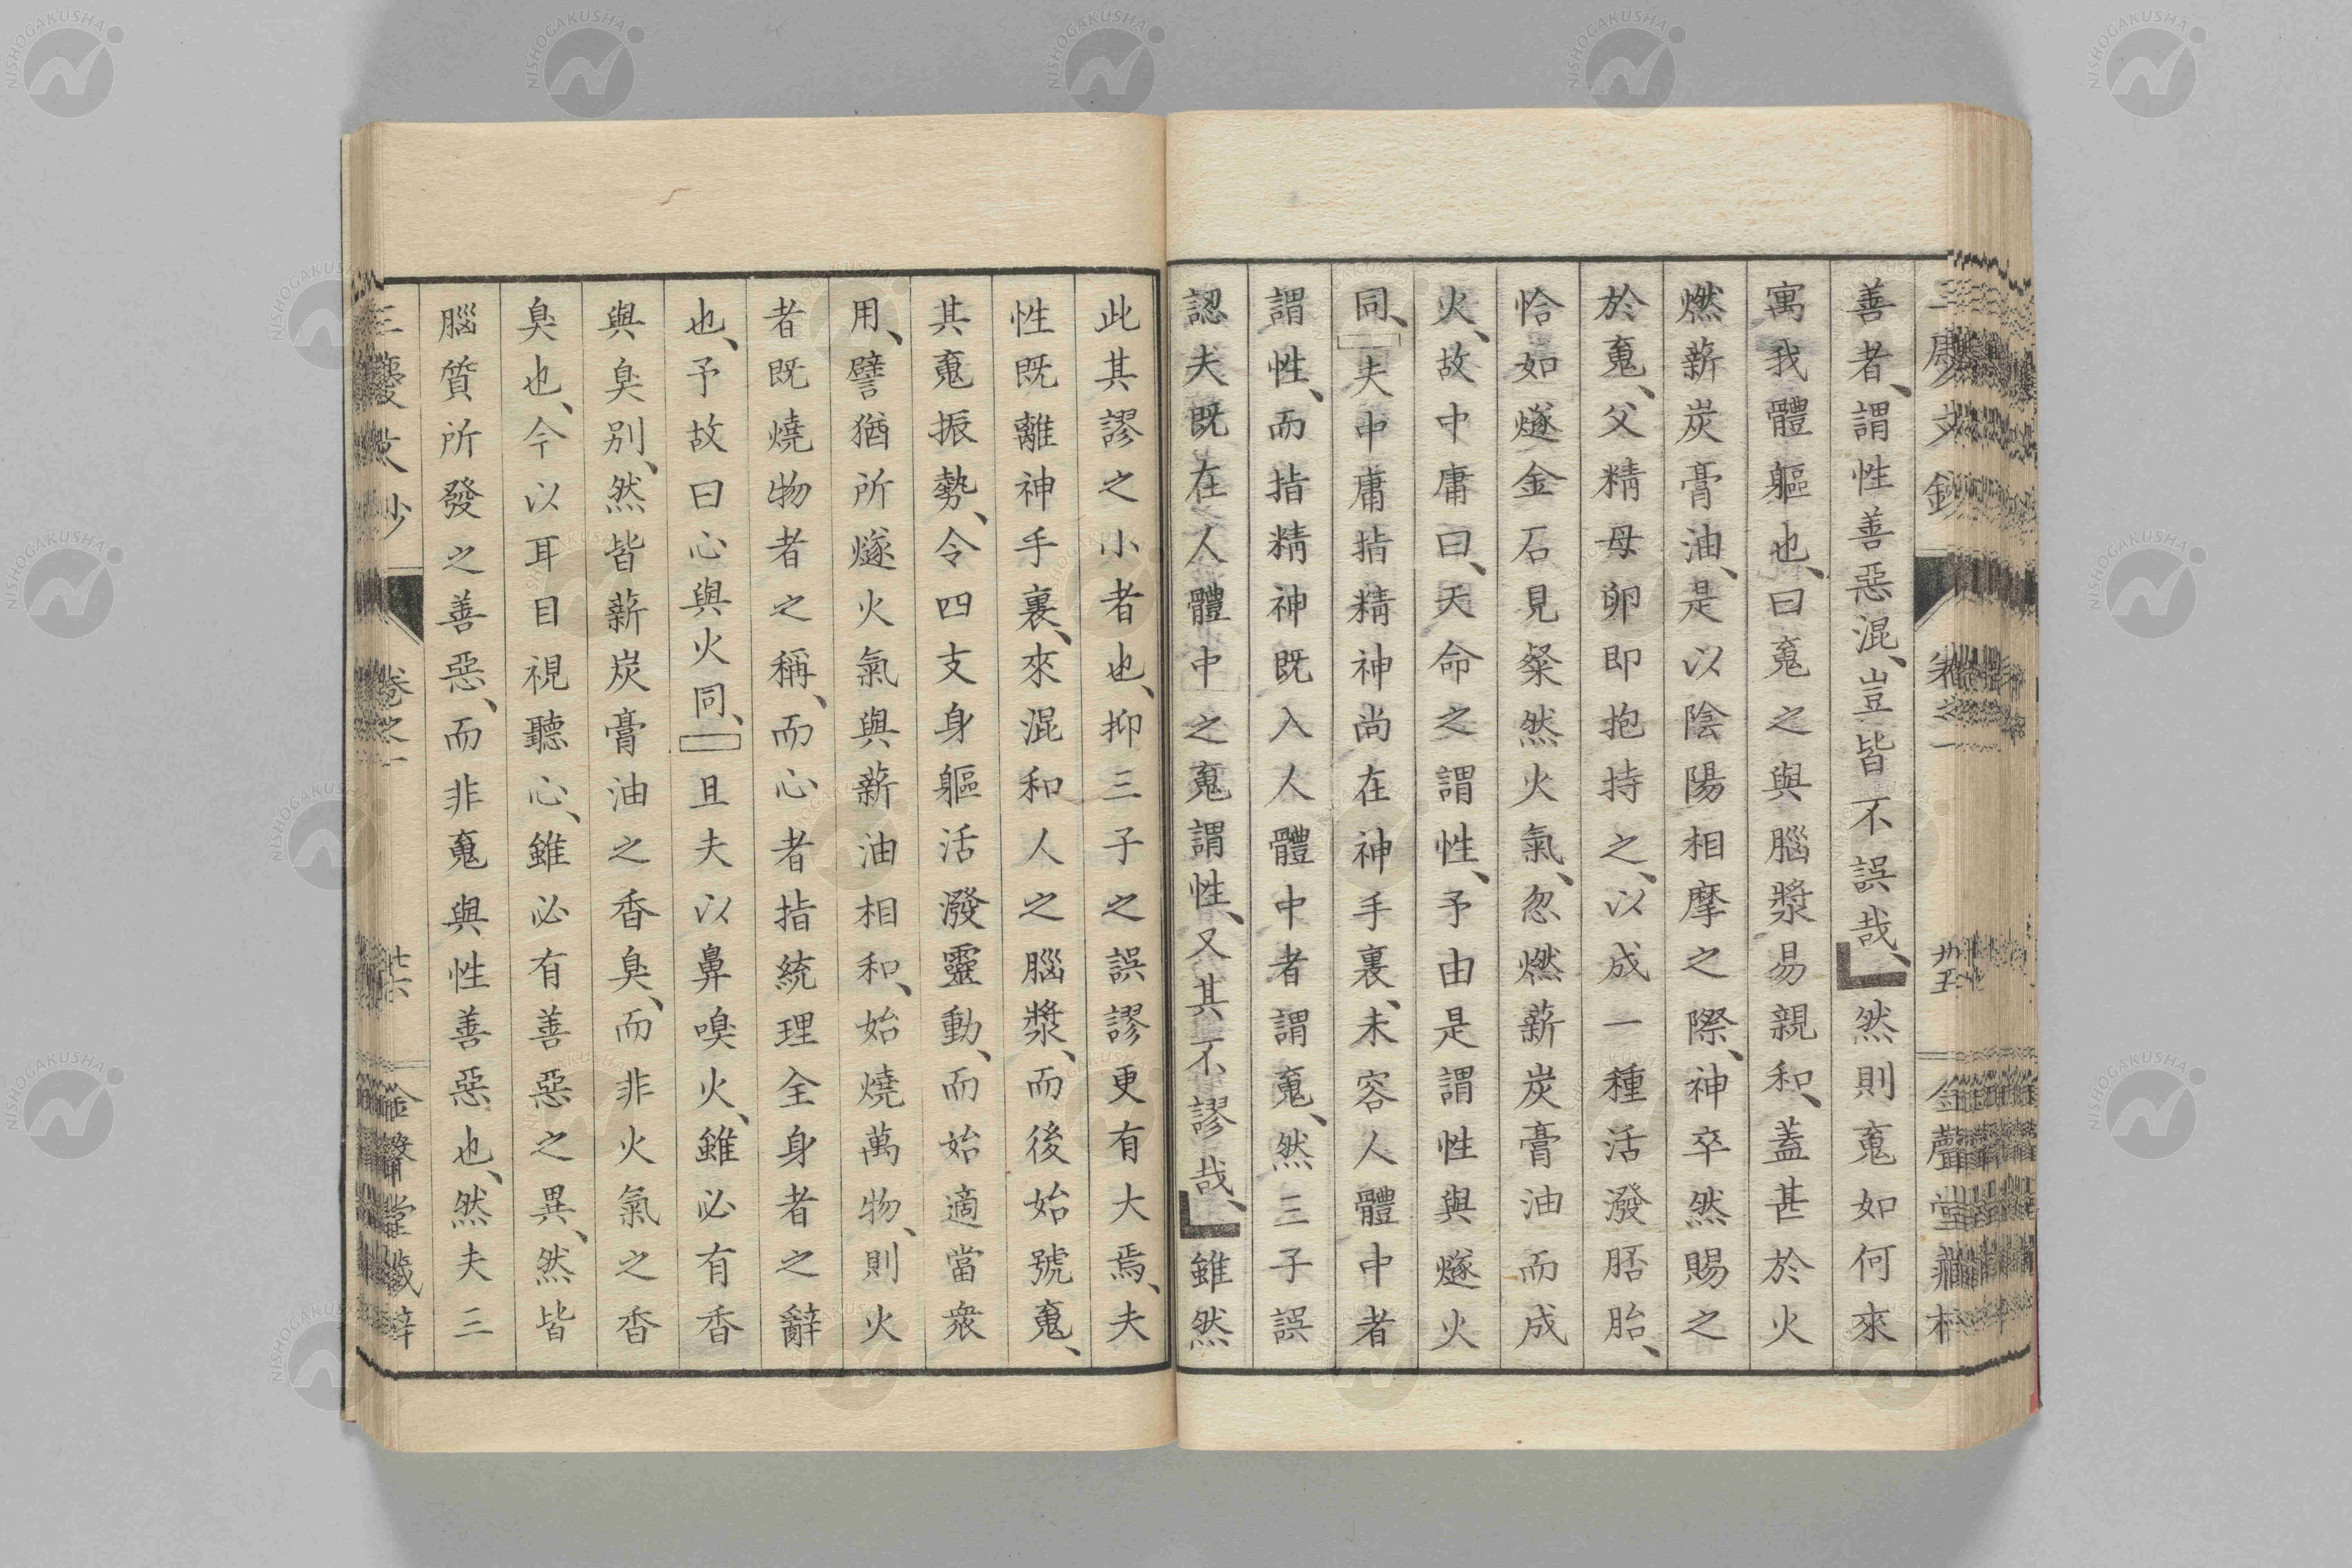 善者、謂性善惡混、豈皆不誤哉、然則䰟如何來
寓我體軀也、曰䰟之與腦漿易親和、蓋甚於火
燃薪炭膏油、是以陰陽相摩之際、神卒然賜之
於䰟、父精母卵即抱持之、以成一種活潑胚胎、
恰如燧金石見粲然火氣、忽燃薪炭膏油而成
火、故中庸曰、天命之謂性、予由是謂性與燧火
同、夫中庸指精神尚在神手裏、未容人體中者
謂性、而指精神既入人體中者謂䰟、然三子誤
認夫既在人體中之䰟謂性、又其不謬哉、雖然
此其謬之小者也、抑三子之誤謬更有大焉、夫
性既離神手裏、來混和人之腦漿、而後始號䰟、
其䰟振勢、令四支身軀活潑靈動、而始適當衆
用、譬猶所燧火氣與薪油相和、始燒萬物、則火
者既燒物者之稱、而心者指統理全身者之辭
也、予故曰心與火同、且夫以鼻嗅火、雖必有香
與臭別、然皆薪炭膏油之香臭、而非火氣之香
臭也、今以耳目視聽心、雖必有善惡之異、然皆
腦質所發之善惡、而非䰟與性善惡也、然夫三